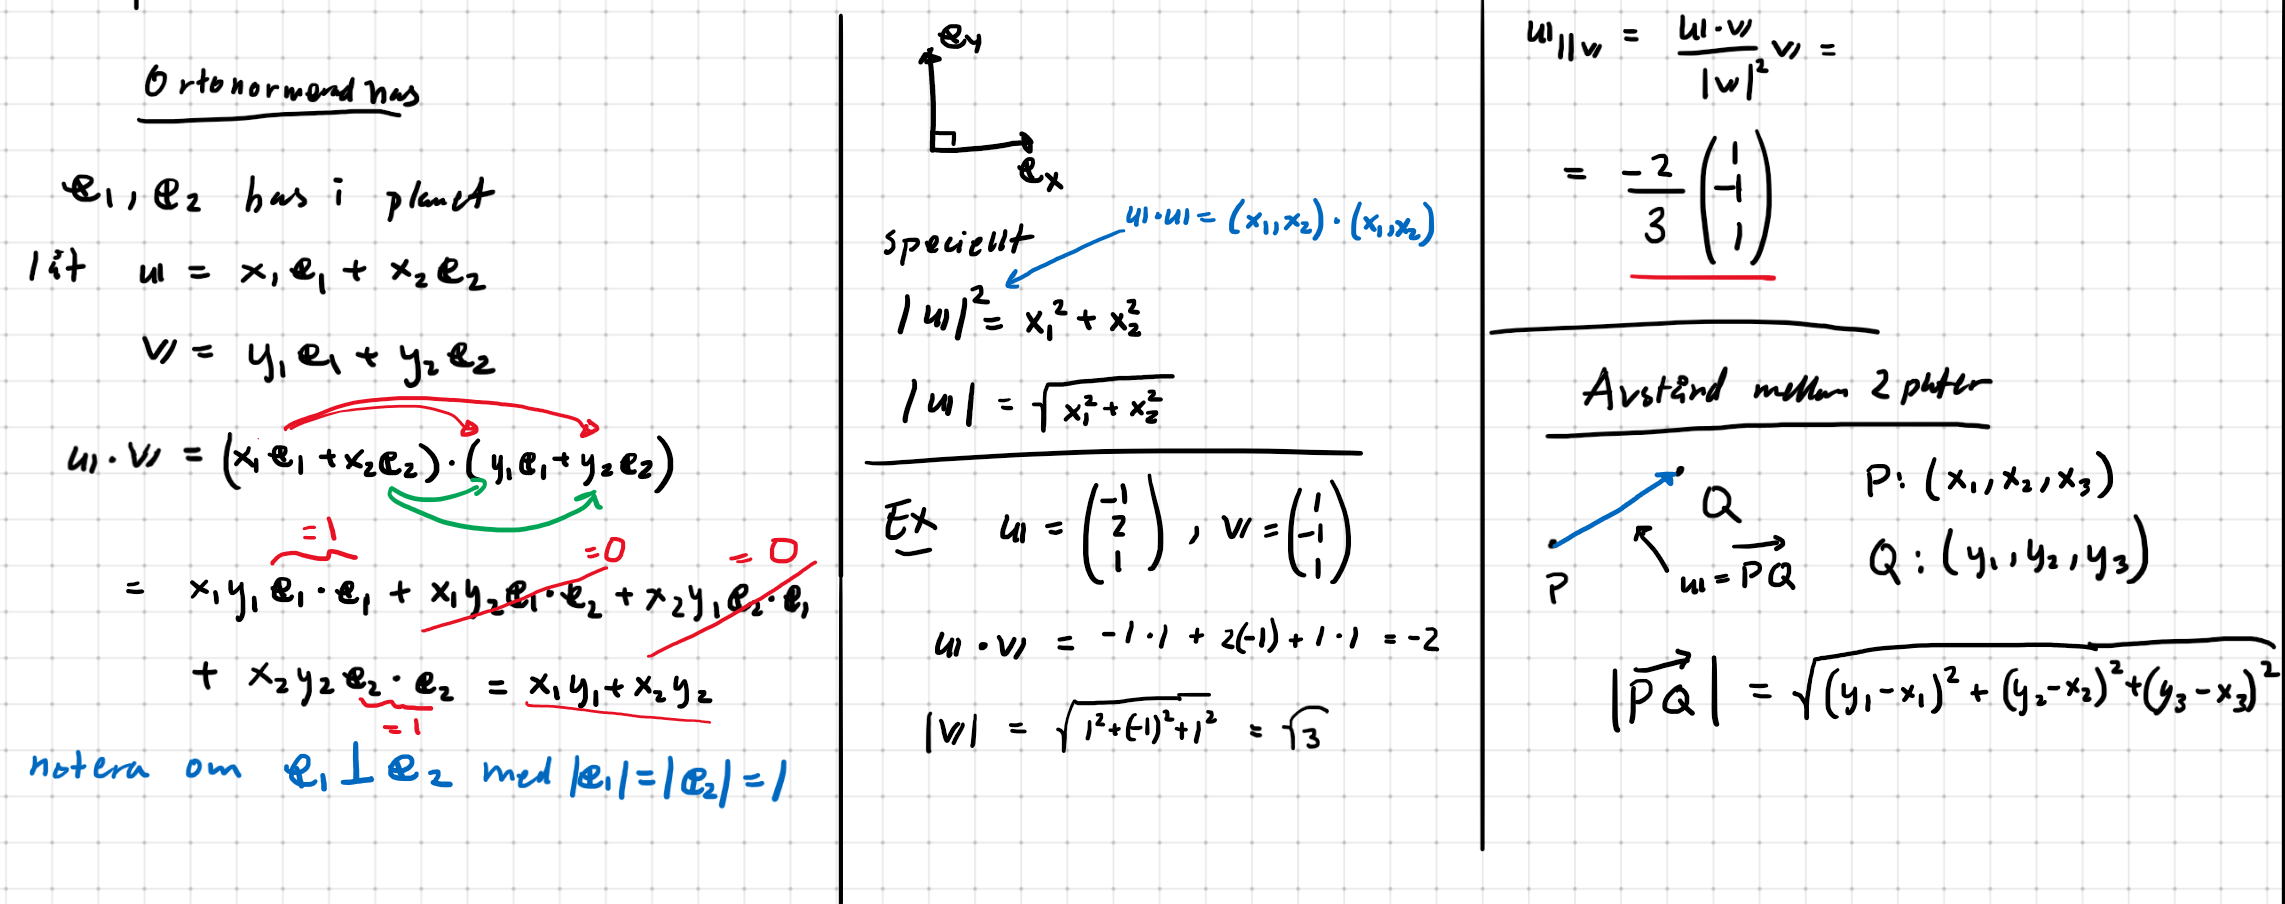 Ortonormerad bas
e₁, e₂ bas i planet
låt u = x₁e₁ + x₂e₂
v = y₁e₁ + y₂e₂
u·v = (x₁e₁ + x₂e₂)·(y₁e₁ + y₂e₂)
=1 =0 =0
= x₁y₁e₁·e₁ + x₁y₂e₁·e₂ + x₂y₁e₂·e₁
+ x₂y₂e₂·e₂ = x₁y₁ + x₂y₂
=1
notera om e₁⊥e₂ med |e₁|=|e₂|=1
e_y
e_x
u·u = (x₁,x₂)·(x₁,x₂)
speciellt
|u|² = x₁² + x₂²
|u| = √(x₁² + x₂²)
Ex u = (-1 2 1), v = (1 -1 1)
u·v = -1·1 + 2(-1) + 1·1 = -2
|v| = √(1²+(-1)²+1²) = √3
u_||v = (u·v)/|v|² v =
= -2/3 (1 -1 1)
Avstånd mellan 2 pkter
Q
P: (x₁, x₂, x₃)
P
u = PQ→
Q: (y₁, y₂, y₃)
|PQ→| = √((y₁-x₁)² + (y₂-x₂)² + (y₃-x₃)²)